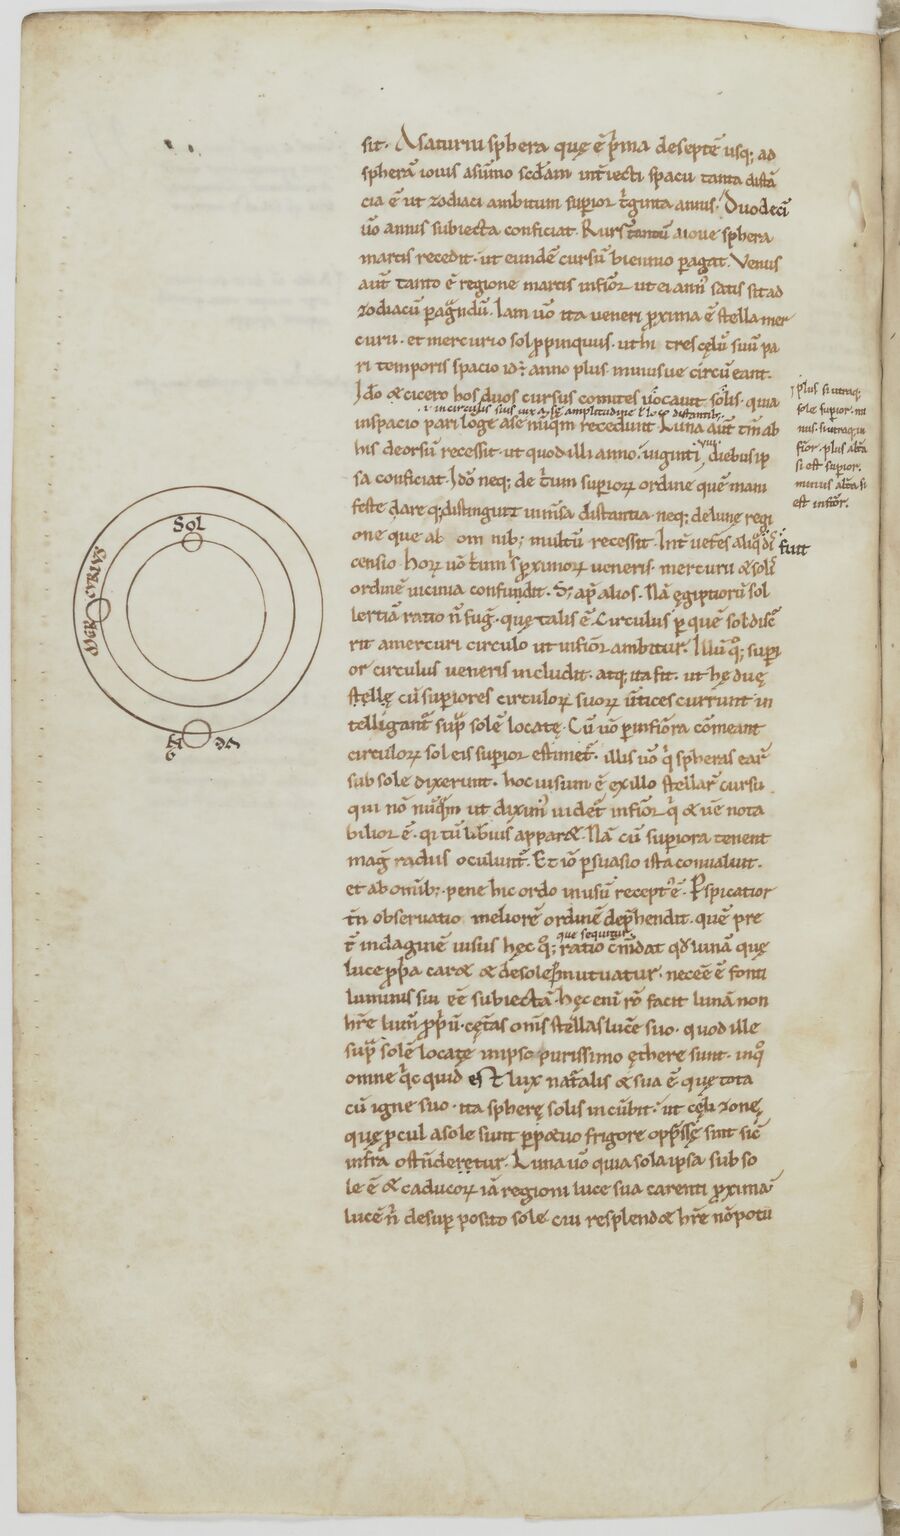 sit. A saturni sphera quę ē p̄ma de septē usq; ad
spherā iouis a sūmo scdam int̄iecti spacii tanta distā
cia ē ut zodiaci ambitum superior t̄ginta annis. Duodecī
ūo annis subiecta conficiat. Rurs tantū a ioue sphera
martis recedit. ut eundē cursū biennio ꝑagat. Venus
aut̄ tanto ē regione martis infior ut ei ann̄ satis sit ad
zodiacū ꝑagndū. Iam ūo ita veneri ꝓxima ē stella mer
curii. et mercurio sol ꝓpinquus. ut hi tres cęlū suū pa
ri temporis spacio id ē anno plus minusue circūeant.
Ido & cicero hos duos cursus comites uocauit solis. quia
in spacio pari loge a se nūqm recedunt. Luna aut̄ tm̄ ab
his deorsū recessit. ut quod illi anno. uiginti viii diebus ip
sa conficiat. Idō neq; de t̄ium superiorꝝ ordine quē mani
feste dare q; distinguit inmsa distantia. neq; de lunę regi
one que ab om nib; multū recessit. Int̄ ueteres aliq di
fuit
censio. horꝝ ūo t̄ium ꝓximorꝝ veneris. mercurii & solis
ordinē uicinia confundit. S; ap̄ alios. Nā ęgiptiorū sol
lertiā ratio n̄ fuḡ. quę talis ē. Circulus ꝑ quē sol discr̄
rit a mercuri circulo ut infior ambitur. Illū q; superi
or circulus ueneris includit. atq; ita fit. ut hę duę
stellę cū superiores circulorꝝ suorꝝ ūtices currunt in
telligant̄ sup̄ solē locatę. Cū ūo ꝑ infiora cōmeant
circulorꝝ sol eis superior estimet̄. illis ūo q̄ spheras ear̄
sub sole dixerunt. hoc uisum ē ex illo stellar̄ cursu.
qui nō nūqm ut diximꝰ uidet̄ infior q̄ & ūe nota
bilior ē. q̄ tū libius appar&. Nā cū superiora tenent
maḡ radiis oculunt̄. Et iō ꝑsuasio ista conualuit.
et ab omib; pene hic ordo in usū receptꝰ ē. Pspicatior
tn̄ obseruatio meliorē ordinē dep̄hendit. quē pre
t̄ indaginē uisus hęc q; ratio cm̄dat qd lunā quę
luce ꝓp̄a car& & de sole mutuatur. necēe ē fonti
luminis sui ēe subiectā. hęc eni rō facit lunā non
hr̄e lum̄ ꝓpū. cęt̄as om̄s stellas lucē suo. quod ille
sup̄ solē locatę in ipso purissimo ęthere sunt. in qͦ
omne q̄c quid est lux nat̄alis & sua ē. quę tota
cū igne suo. ita spherę solis incūbit. ut cęli zonę
quę ꝓcul a sole sunt ꝑp&uo frigore opp̄ssę sint sic̄
infra ostn̄deretur. Luna ūo quia sola ipsa sub so
le ē & caducorꝝ iā regioni luce sua carenti ꝓxima
lucē n̄ desuꝑ posito sole. cui resplend& hr̄e nō potu
que sequitur
plus si utraq;
sole superior. mi
nus. si utraq; in
fior. plus alt̄a
si est superior.
minus alt̄a si
est infior.
Sol
MERCURIUS